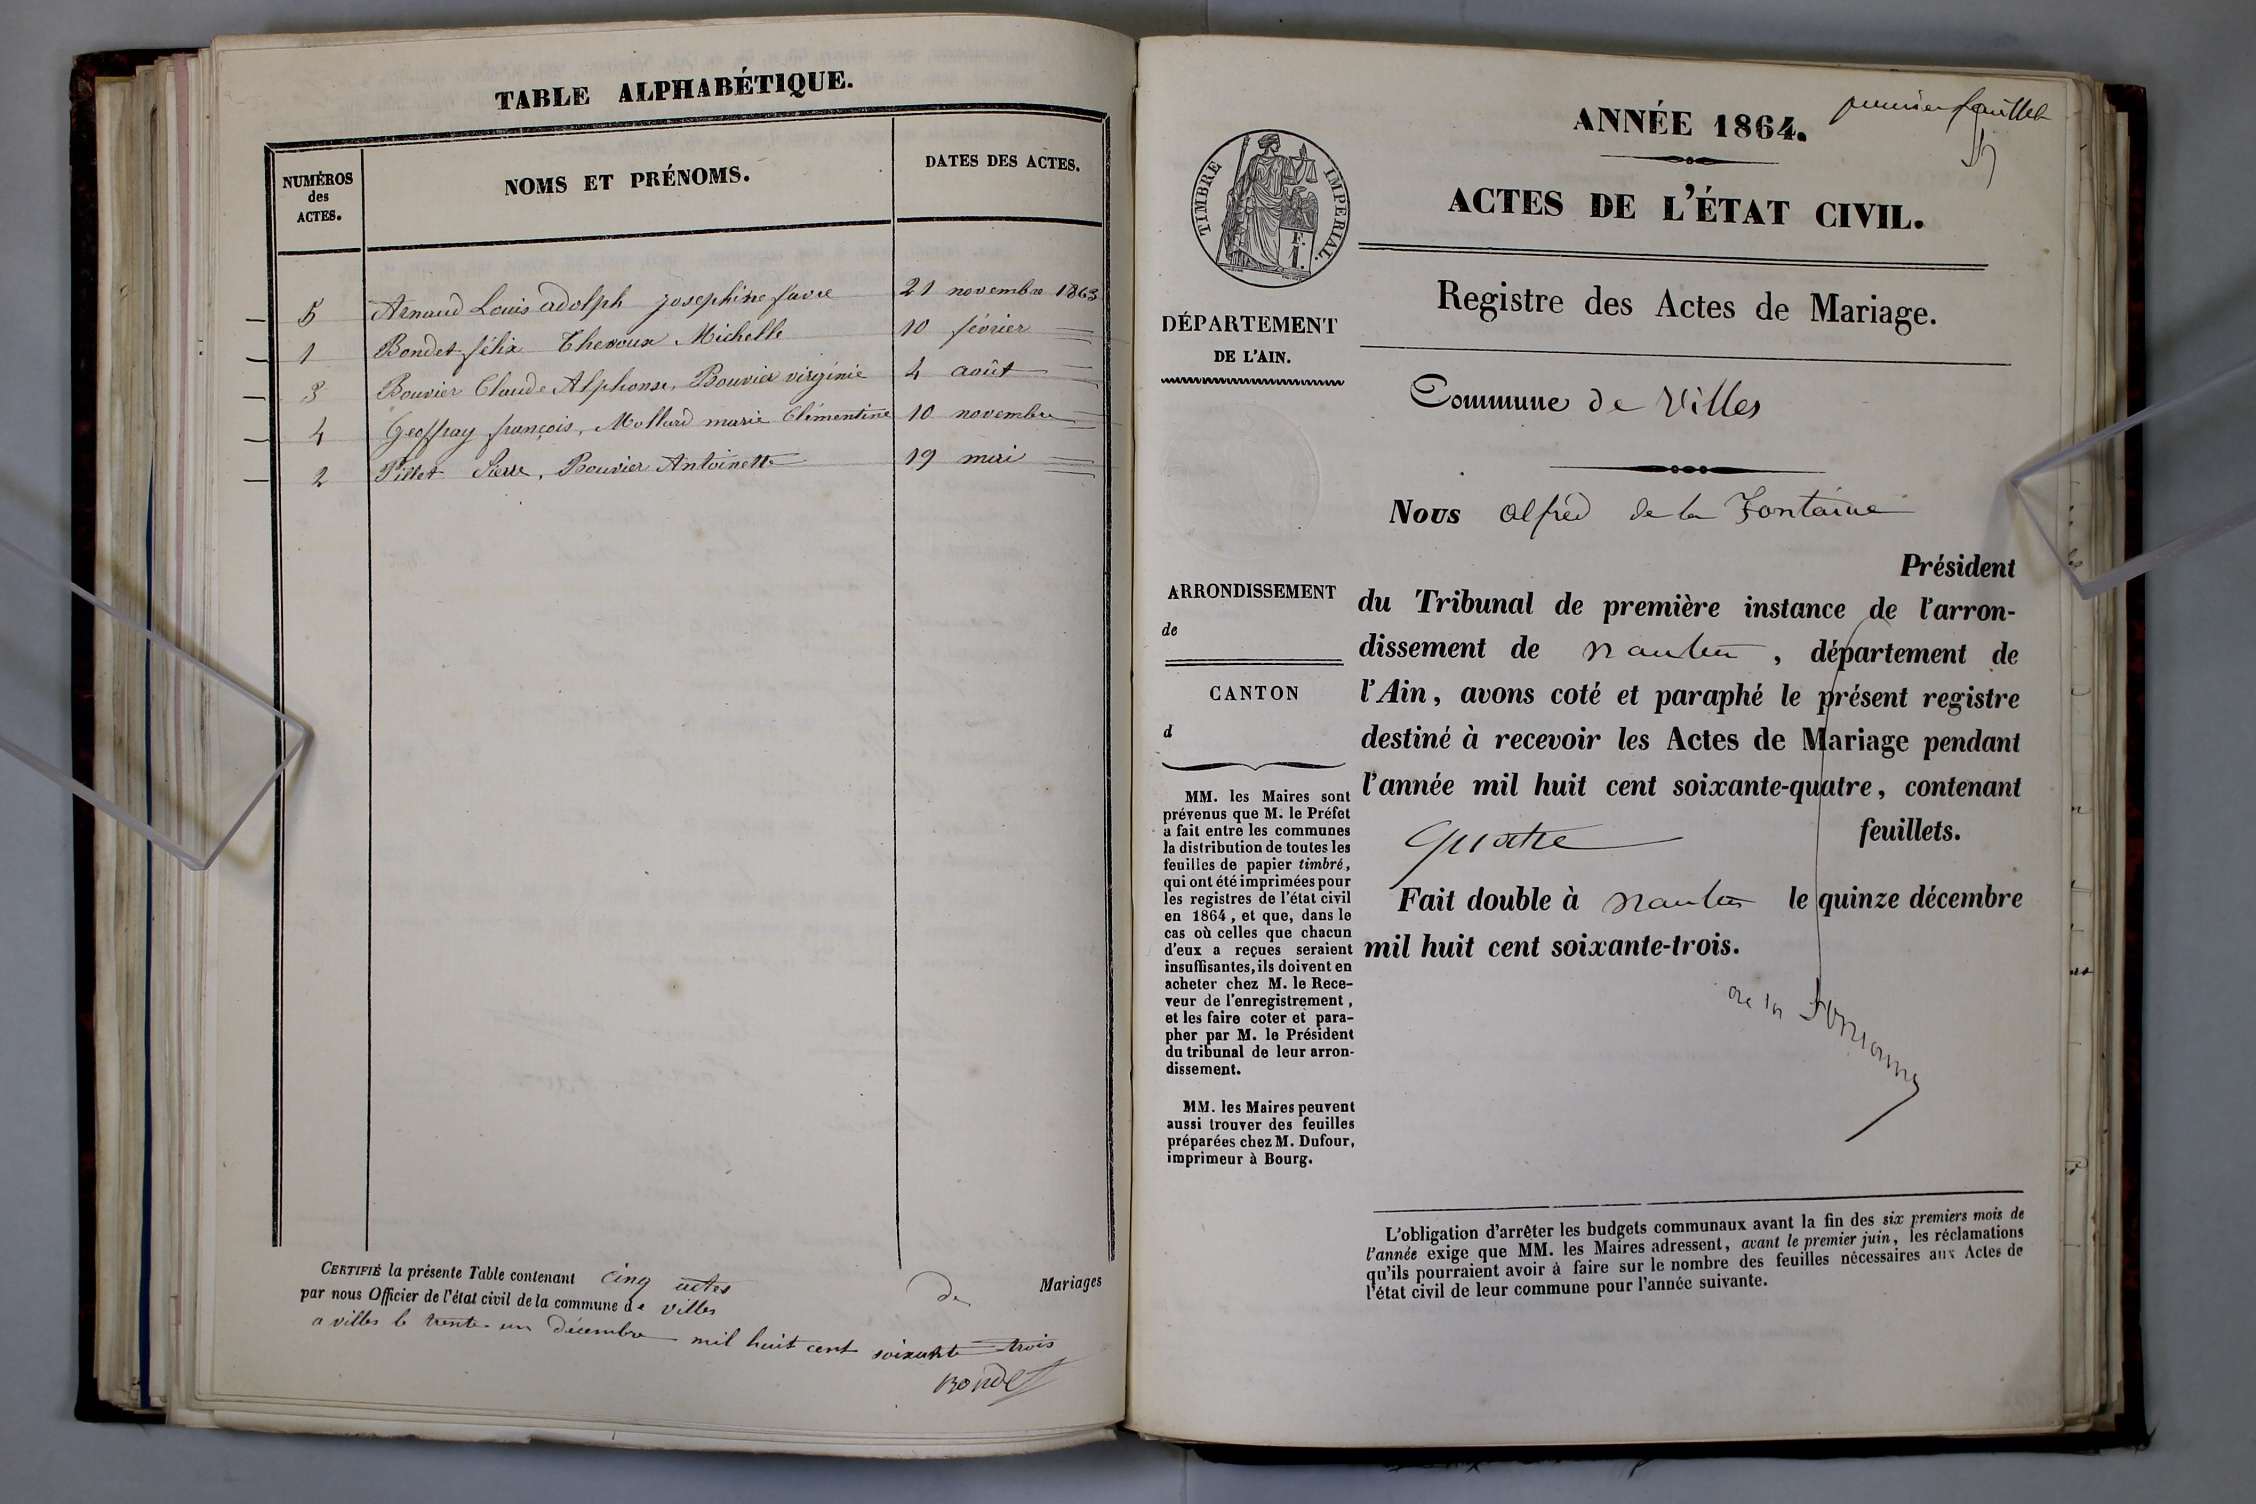 TABLE ALPHABÉTIQUE.
NUMÉROS
des
ACTES.
NOMS ET PRÉNOMS.
DATES DES ACTES.
5 Arnaud Louis adolph josephine favre 21 novembre 1863
1 Bondet félix Thevoux Michelle 10 février
3 Bouvier Claude Alphonse, Bouvier virginie 4 août
4 Geoffray françois, Mollard marie Clémentine 10 novembre
2 Pillet Pierre, Bouvier Antoinette 19 mai
CERTIFIÉ la présente Table contenant cinq actes de Mariages
par nous Officier de l'état civil de la commune de villes
a villes le trente-un décembre mil huit cent soixante trois
Bondet
premier feuillet
ANNÉE 1864.
ACTES DE L'ÉTAT CIVIL.
TIMBRE IMPERIAL.
F.
1.
Registre des Actes de Mariage.
DÉPARTEMENT
DE L'AIN.
Commune de Villes
Nous alfred de la Fontaine
Président
du Tribunal de première instance de l'arron-
dissement de nantua, département de
l'Ain, avons coté et paraphé le présent registre
destiné à recevoir les Actes de Mariage pendant
l'année mil huit cent soixante-quatre, contenant
quatre feuillets.
Fait double à nantua le quinze décembre
mil huit cent soixante-trois.
de la Fontaine
ARRONDISSEMENT
de
CANTON
d
MM. les Maires sont
prévenus que M. le Préfet
a fait entre les communes
la distribution de toutes les
feuilles de papier timbré,
qui ont été imprimées pour
les registres de l'état civil
en 1864, et que, dans le
cas où celles que chacun
d'eux a reçues seraient
insuffisantes, ils doivent en
acheter chez M. le Rece-
veur de l'enregistrement,
et les faire coter et para-
pher par M. le Président
du tribunal de leur arron-
dissement.
MM. les Maires peuvent
aussi trouver des feuilles
préparées chez M. Dufour,
imprimeur à Bourg.
L'obligation d'arrêter les budgets communaux avant la fin des six premiers mois de
l'année exige que MM. les Maires adressent, avant le premier juin, les réclamations
qu'ils pourraient avoir à faire sur le nombre des feuilles nécessaires aux Actes de
l'état civil de leur commune pour l'année suivante.